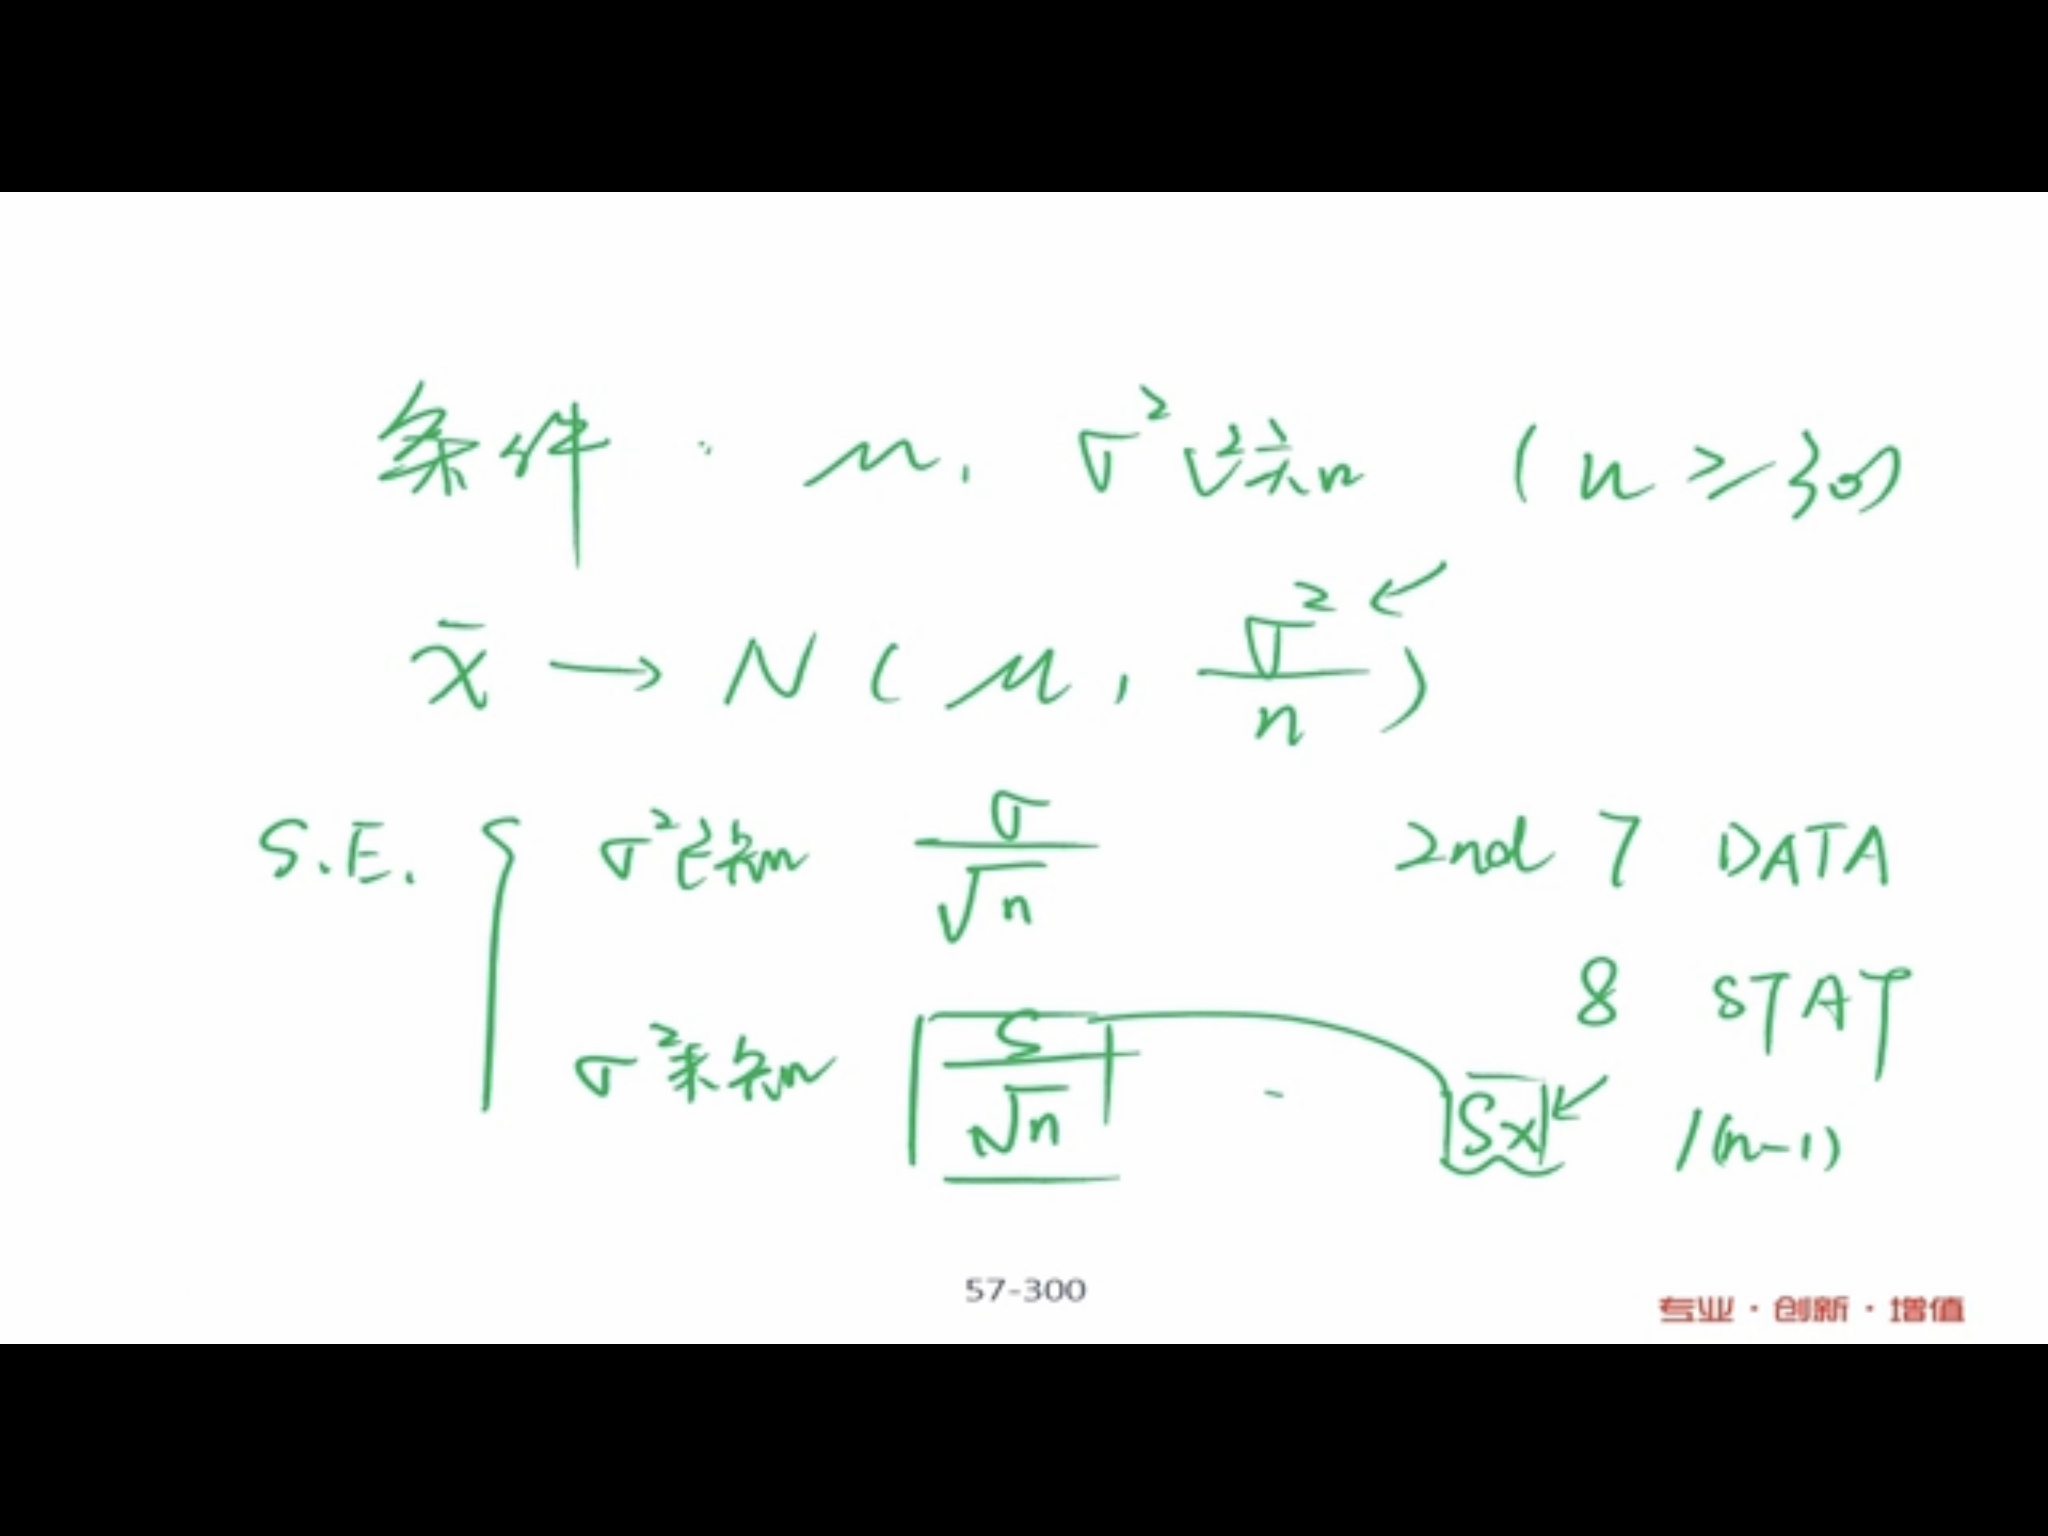 条件: μ, σ² 已知 (n ≥ 30)
x̄ → N(μ, σ²/n)
S.E. { σ²已知 σ/√n 2nd 7 DATA
8 STAT
σ²未知 S/√n Sx /(n-1)
57-300
专业·创新·增值